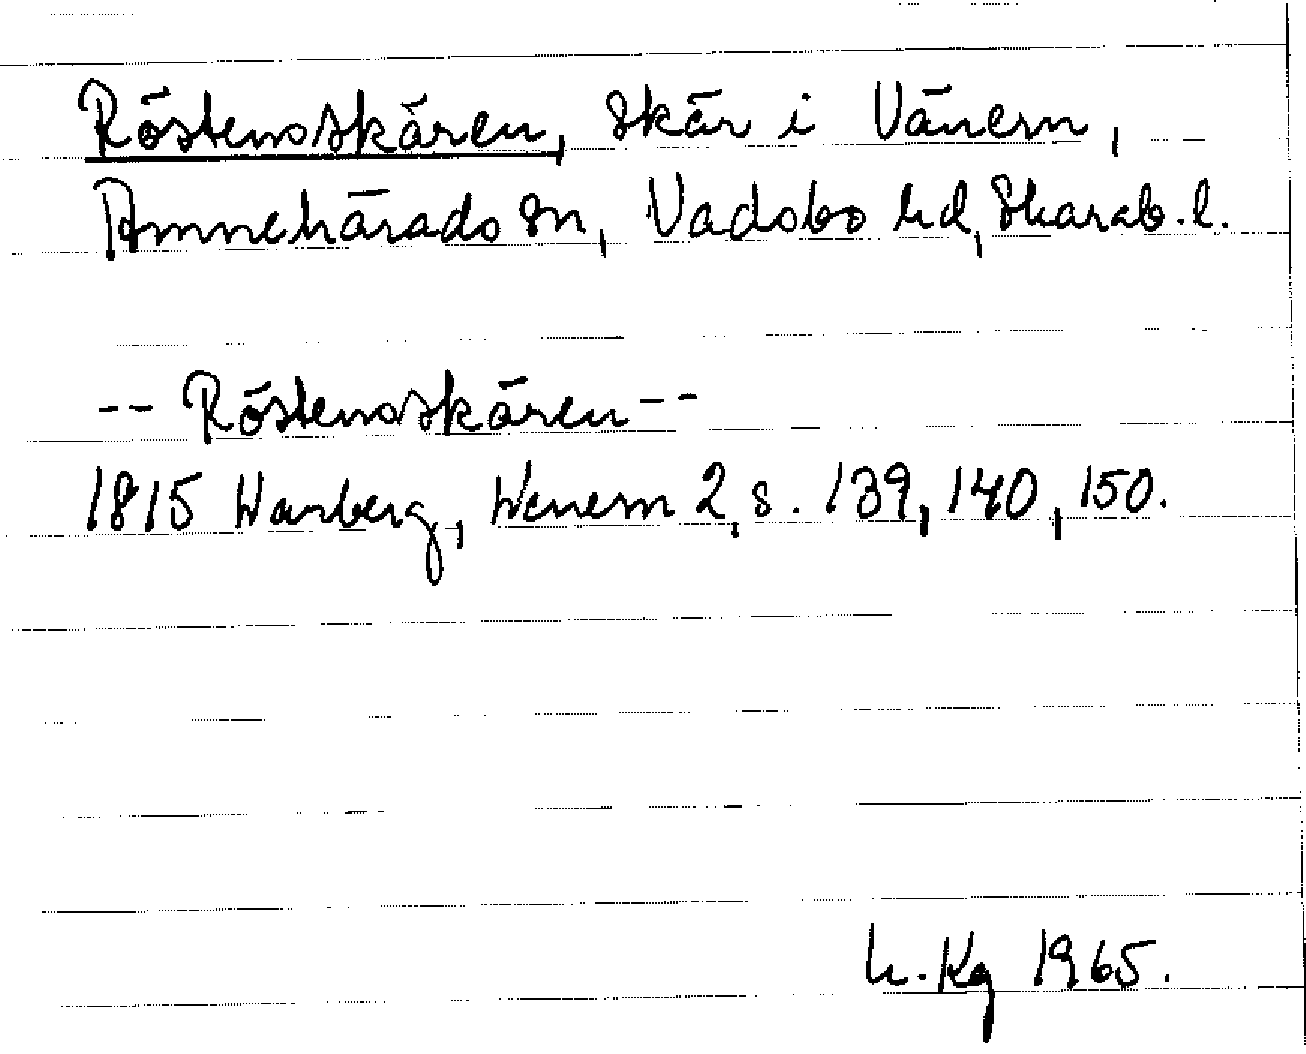 Röstensskären, skär i Vänern,
Amnehärads sn, Vadsbo hd, Skarab. l.
-- Röstensskären --
1815 Warberg, Wenern 2, s. 139, 140, 150.
h. Kg 1965.